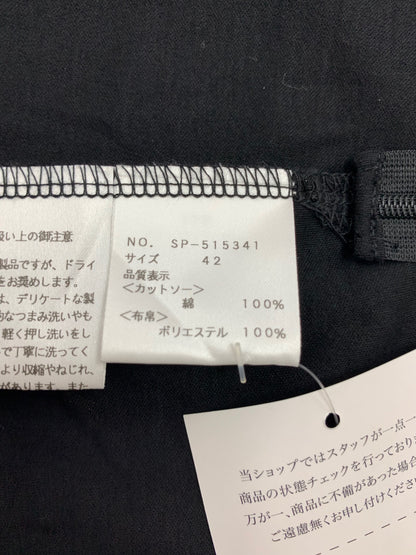 扱い上の御注意
製品ですが、ドライ
をお奨めします。
は、デリケートな製
的なつまみ洗いやも
軽く押し洗いをし
で丁寧に洗ってく
より収縮やねじれ、
があります。また
NO. SP-515341
サイズ 42
品質表示
<カットソー>
綿 100%
<布帛>
ポリエステル 100%
当ショップではスタッフが一点一
商品の状態チェックを行っており
万が一、商品に不備があった場合
ご遠慮無くお申し付けくださ